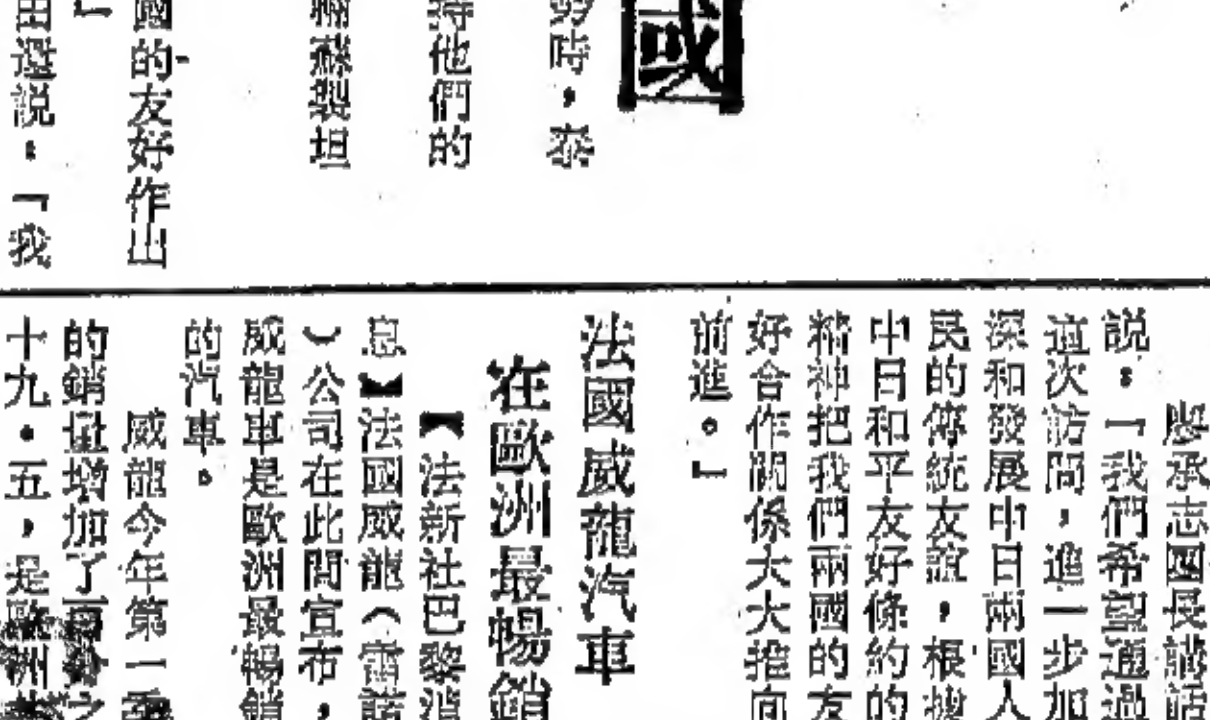 國
勢時，泰
持他們的
輛蘇製坦
國的友好作出
」
田還説：「我
廖承志團長講話
説：「我們希望通過
這次訪問，進一步加
深和發展中日兩國人
民的傳統友誼，根據
中日和平友好條約的
精神把我們兩國的友
好合作關係大大推向
前進。」
法國威龍汽車
在歐洲最暢銷
【法新社巴黎消
息】法國威龍（雷諾
）公司在此間宣布，
威龍車是歐洲最暢銷
的汽車。
威龍今年第一季
的銷量增加了百分之
十九·五，是歐洲